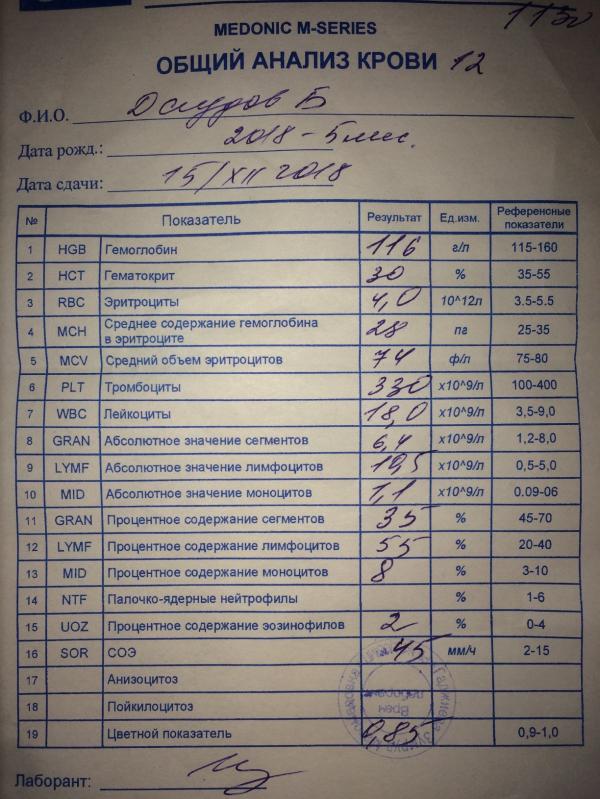 115
MEDONIC M-SERIES
ОБЩИЙ АНАЛИЗ КРОВИ 12
Ф.И.О. Б
Дата рожд.: 2018 - 5 мес.
Дата сдачи: 15/XII 2018
№ Показатель Результат Ед.изм. Референсные показатели
1 HGB Гемоглобин 116 г/л 115-160
2 HCT Гематокрит 30 % 35-55
3 RBC Эритроциты 4,0 10^12л 3.5-5.5
4 MCH Среднее содержание гемоглобина в эритроците 28 пг 25-35
5 MCV Средний объем эритроцитов 74 ф/л 75-80
6 PLT Тромбоциты 330 х10^9/л 100-400
7 WBC Лейкоциты 18,0 х10^9/л 3,5-9,0
8 GRAN Абсолютное значение сегментов 6,4 х10^9/л 1,2-8,0
9 LYMF Абсолютное значение лимфоцитов 10,5 х10^9/л 0,5-5,0
10 MID Абсолютное значение моноцитов 1,1 х10^9/л 0.09-06
11 GRAN Процентное содержание сегментов 35 % 45-70
12 LYMF Процентное содержание лимфоцитов 55 % 20-40
13 MID Процентное содержание моноцитов 8 % 3-10
14 NTF Палочко-ядерные нейтрофилы % 1-6
15 UOZ Процентное содержание эозинофилов 2 % 0-4
16 SOR СОЭ 45 мм/ч 2-15
17 Анизоцитоз
18 Пойкилоцитоз
19 Цветной показатель 0,85 0,9-1,0
Врач
Лаборант: